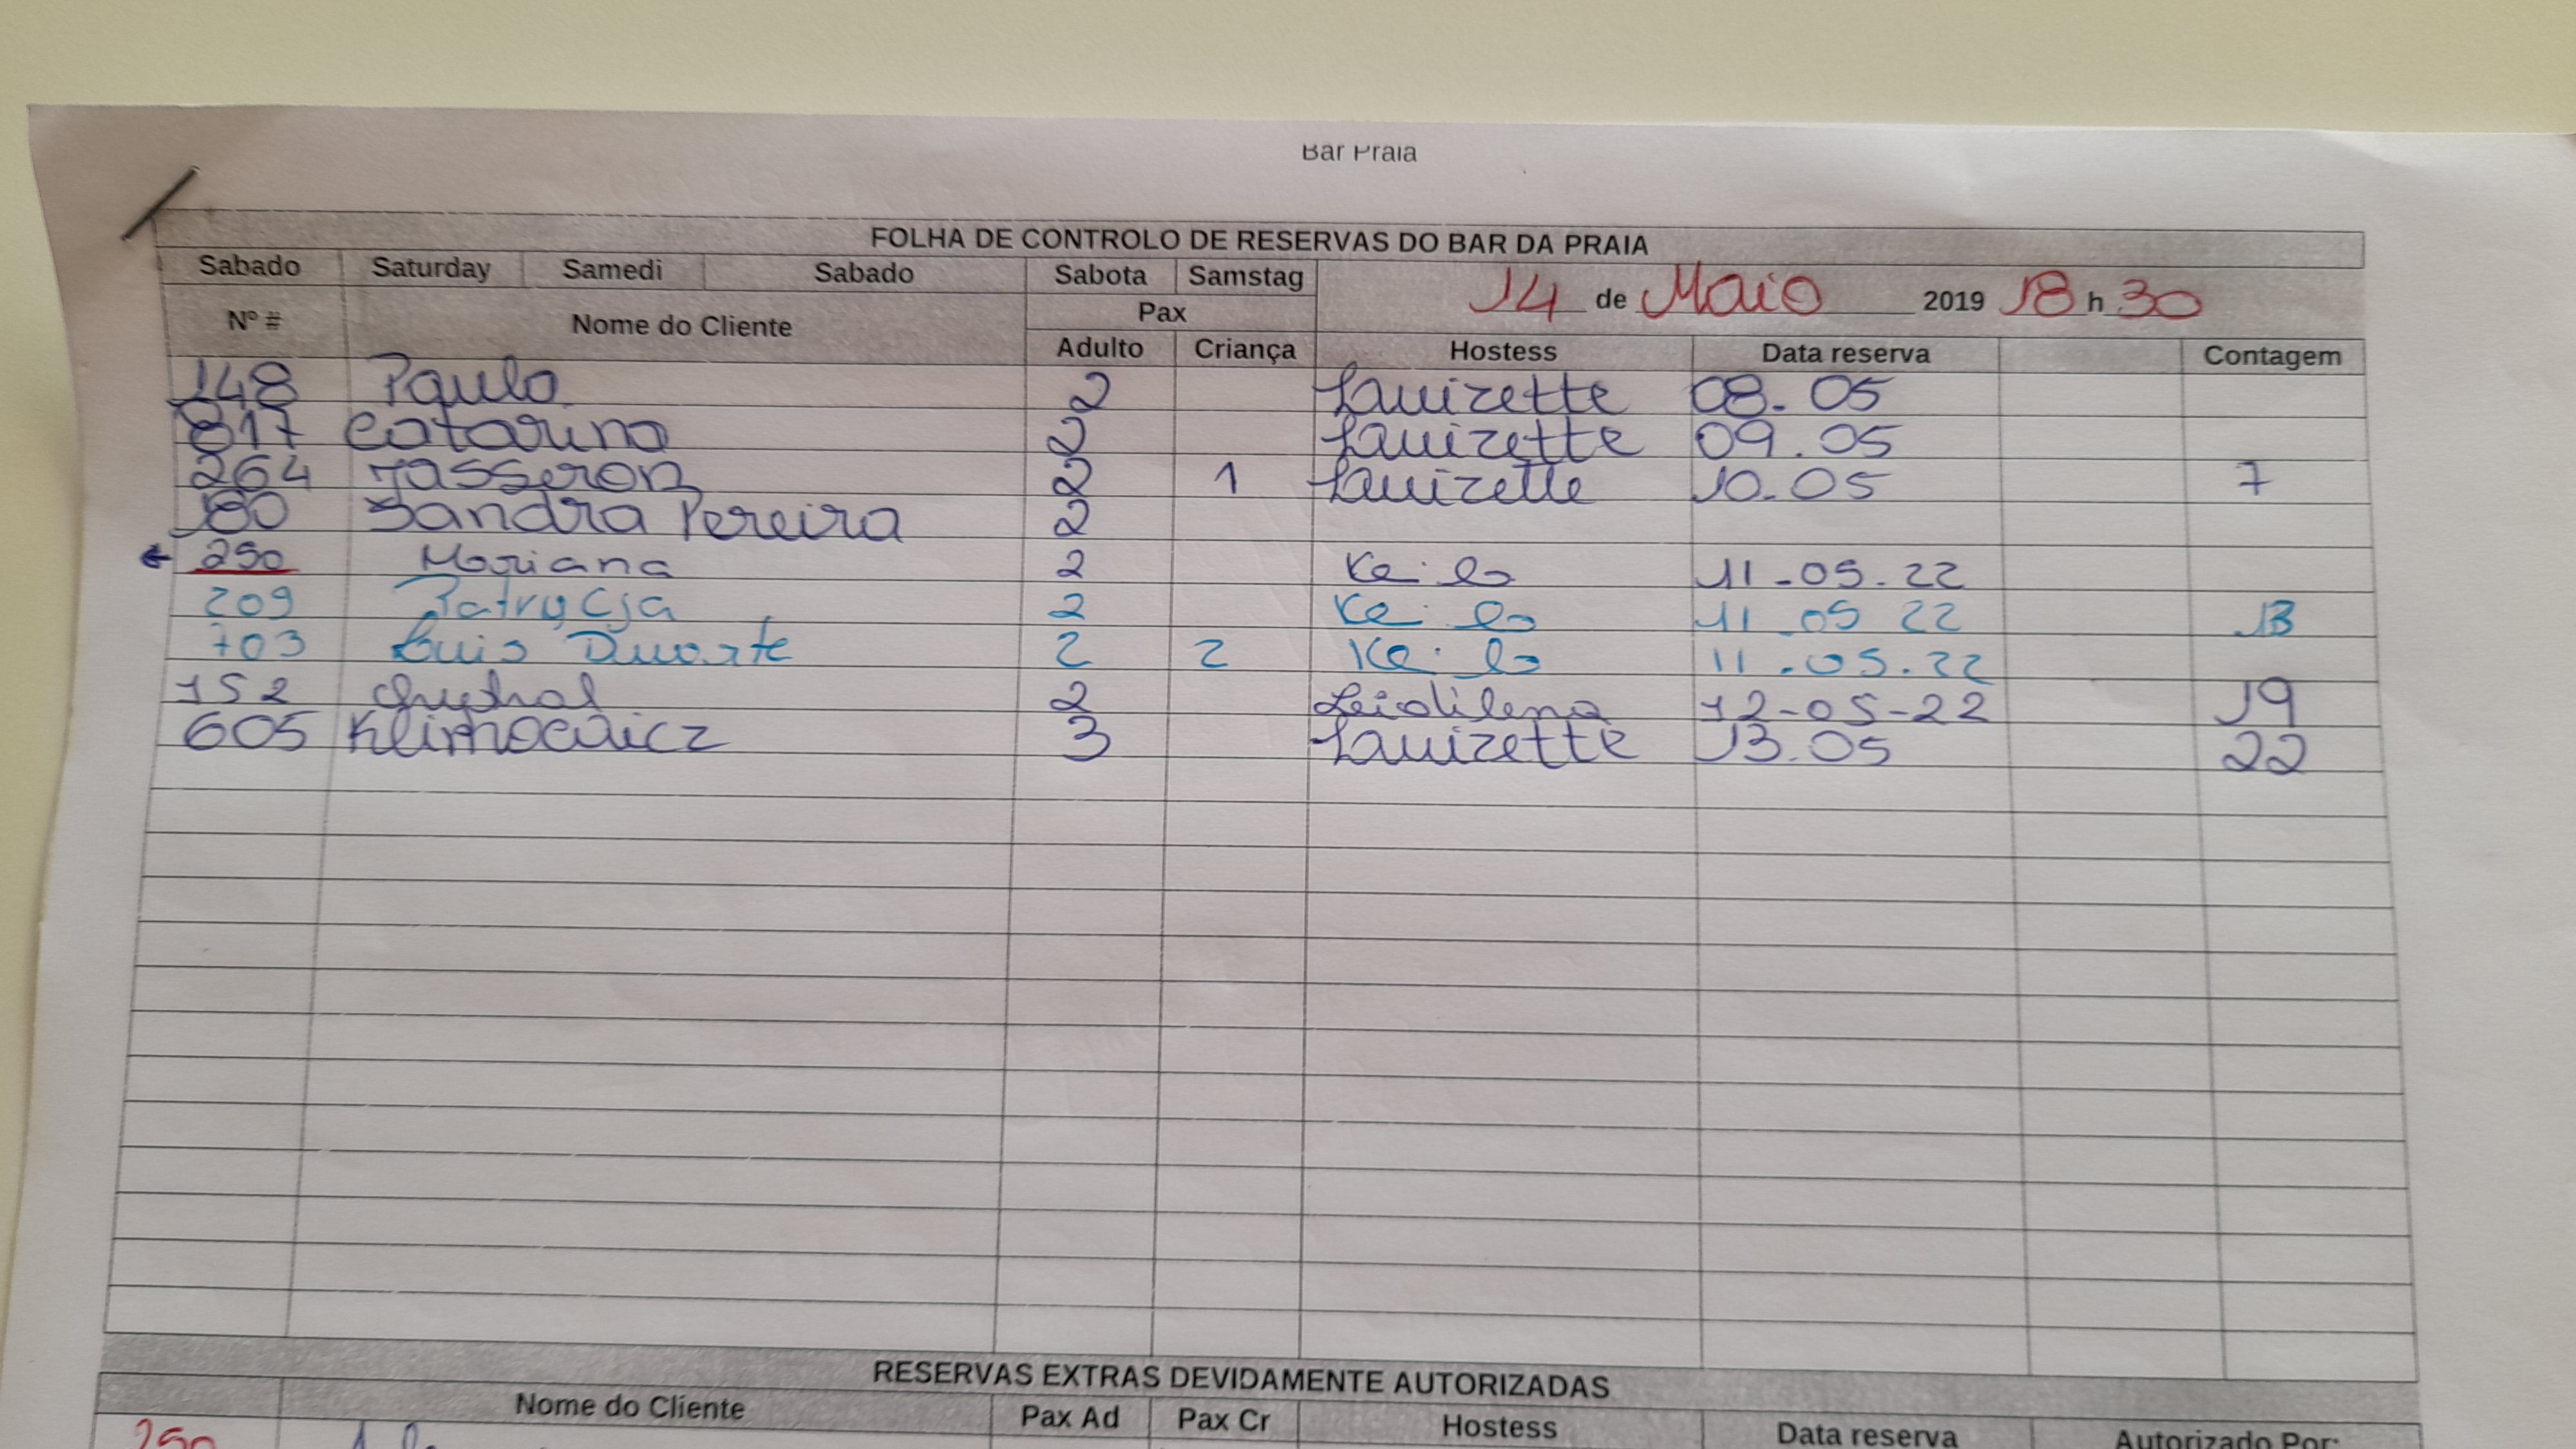 Bar Praia
FOLHA DE CONTROLO DE RESERVAS DO BAR DA PRAIA
Sabado Saturday Samedi Sabado Sabota Samstag 14 de Maio 2019 18 h 30
Nº # Nome do Cliente Pax
Adulto Criança Hostess Data reserva Contagem
148 Paulo 2 Lauizette 08.05
817 Catarina 2 Lauizette 09.05
264 Tasseron 2 1 Lauizette 10.05 7
180 Sandra Pereira 2
250 Mariana 2 Keila 11-05-22
209 Patrycja 2 Keila 11 05 22 13
703 Luis Duarte 2 2 Keila 11.05.22
152 2 Leidilena 12-05-22 19
605 Klimocwicz 3 Lauizette 13.05 22
RESERVAS EXTRAS DEVIDAMENTE AUTORIZADAS
Nome do Cliente Pax Ad Pax Cr Hostess Data reserva Autorizado Por:
250